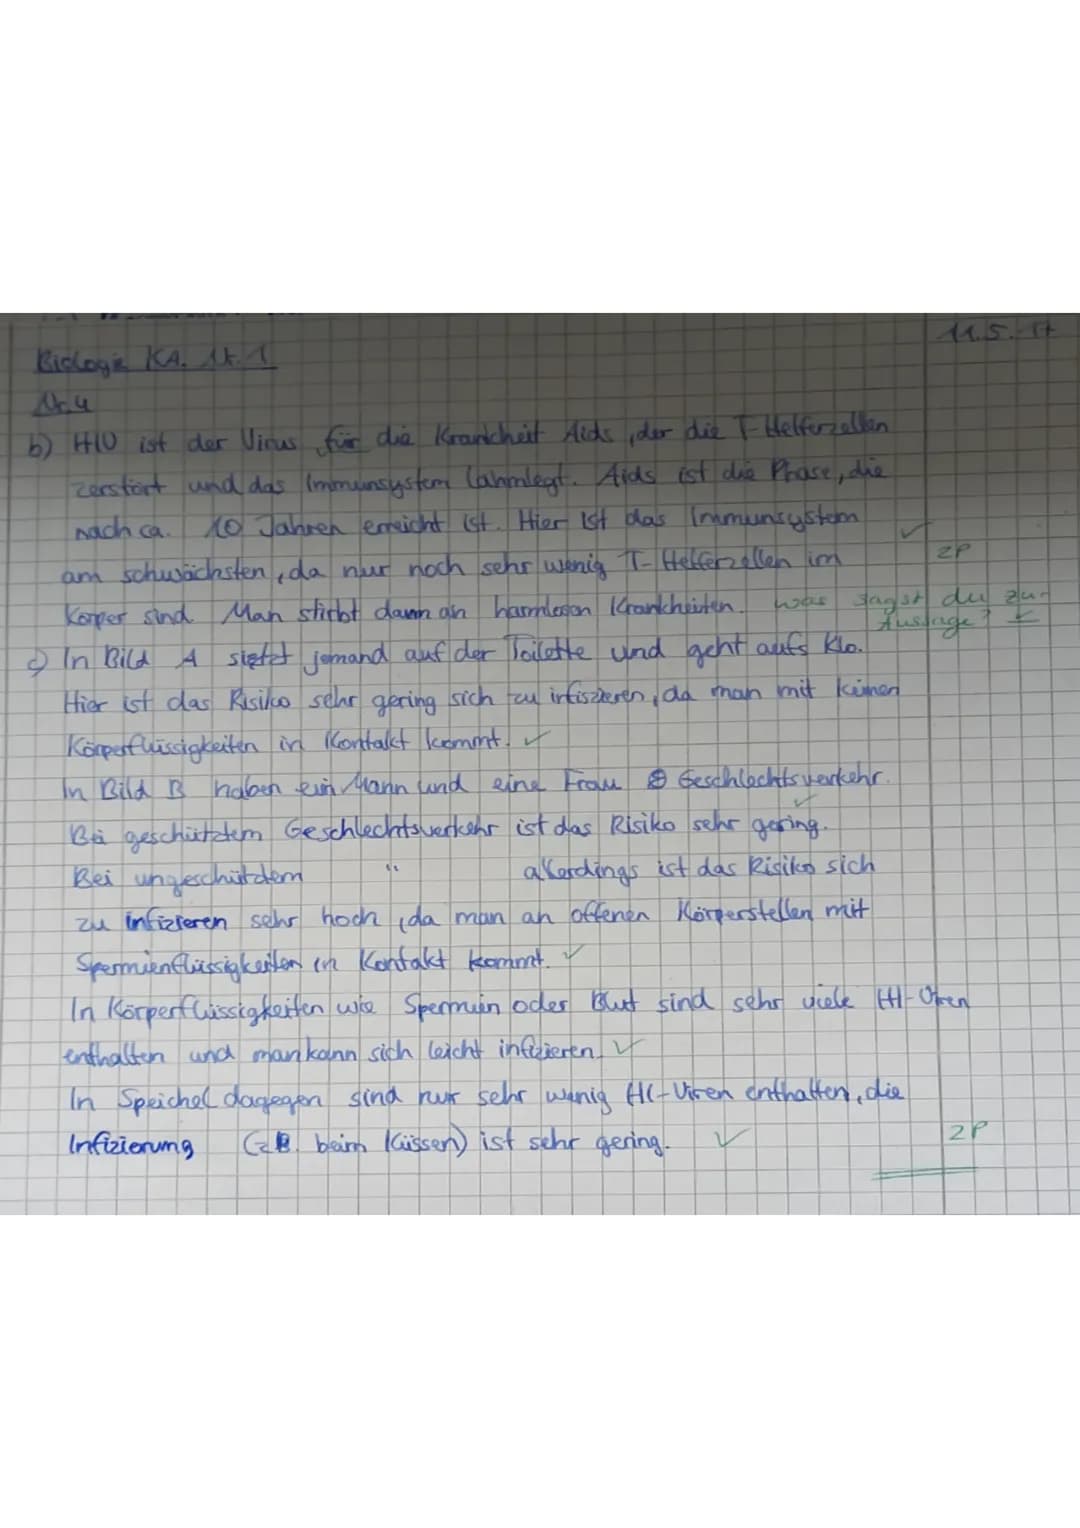 11.5.17
Biologie KA. Nr. 1
Nr. 4
b) HIV ist der Virus für die Krankheit Aids, der die T-Helferzellen
zerstört und das Immunsystem lahmlegt. Aids ist die Phase, die
nach ca. 10 Jahren erreicht ist. Hier ist das Immunsystem ✓
am schwächsten, da nur noch sehr wenig T-Helferzellen im 2P
Körper sind. Man stirbt dann an harmlosen Krankheiten. was sagst du zur
Aussage?
c) In Bild A sietzt jemand auf der Toilette und geht aufs Klo.
Hier ist das Risiko sehr gering sich zu infiszieren, da man mit keinen
Körperflüssigkeiten in Kontakt kommt. ✓
In Bild B haben ein Mann und eine Frau Geschlechtsverkehr.
Bei geschütztem Geschlechtsverkehr ist das Risiko sehr gering. ✓
Bei ungeschütztem " allerdings ist das Risiko sich
zu infizieren sehr hoch, da man an offenen Körperstellen mit
Spermienflüssigkeiten in Kontakt kommt. ✓
In Körperflüssigkeiten wie Spermien oder Blut sind sehr viele HI-Viren
enthalten und man kann sich leicht infizieren. ✓
In Speichel dagegen sind nur sehr wenig HI-Viren enthalten, die
Infizierung (z.B. beim Küssen) ist sehr gering. ✓ 2P